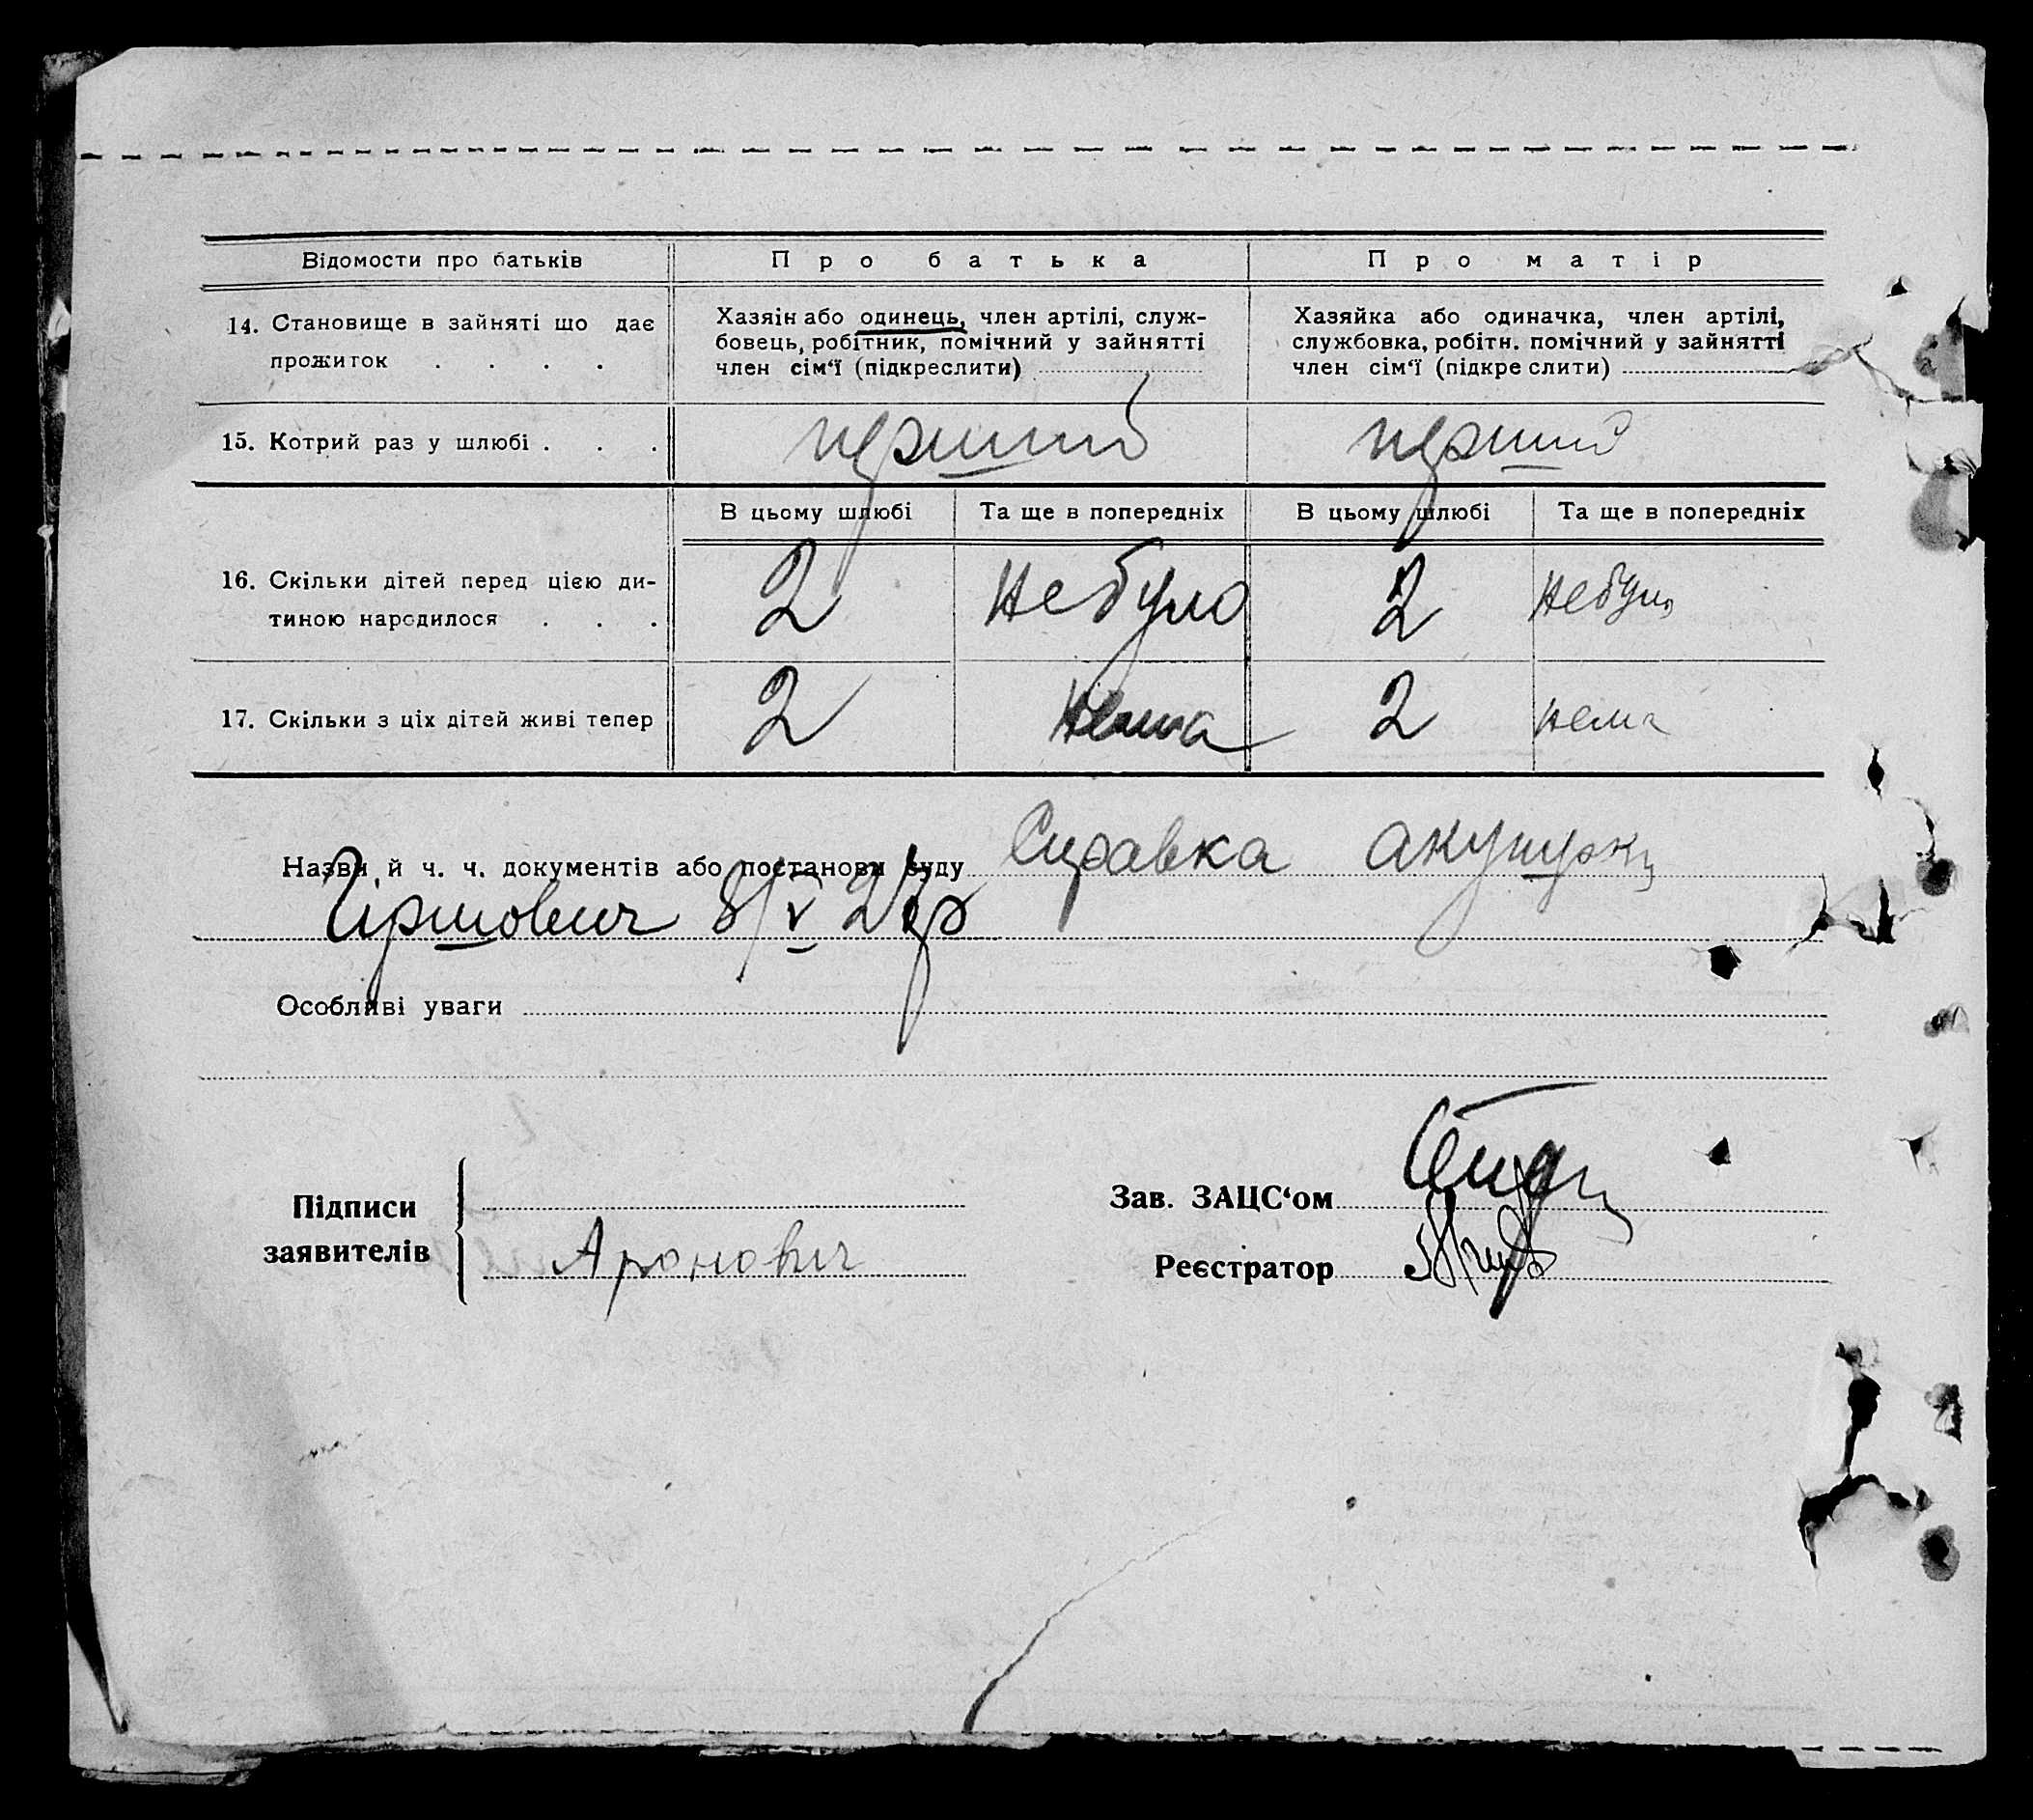 Відомости про батьків Про батька Про матір
14. Становище в зайняті що дає прожиток . . . .
Хазяін або одинець, член артілі, служ-
бовець, робітник, помічний у зайнятті
член сім‘ї (підкреслити)
Хазяйка або одиначка, член артілі,
службовка, робітн. помічний у зайнятті
член сім‘ї (підкреслити)
15. Котрий раз у шлюбі . . . перший перший
В цьому шлюбі Та ще в попередніх В цьому шлюбі Та ще в попередніх
16. Скільки дітей перед цією ди-
тиною народилося . . . 2 Небуло 2 Небуло
17. Скільки з ціх дітей живі тепер 2 Нема 2 нема
Назви й ч. ч. документів або постанови суду Справка акушерки
Гіршович 8/V 27р
Особливі уваги
Підписи
заявителів
Аронович
Зав. ЗАЦС‘ом
Реєстратор